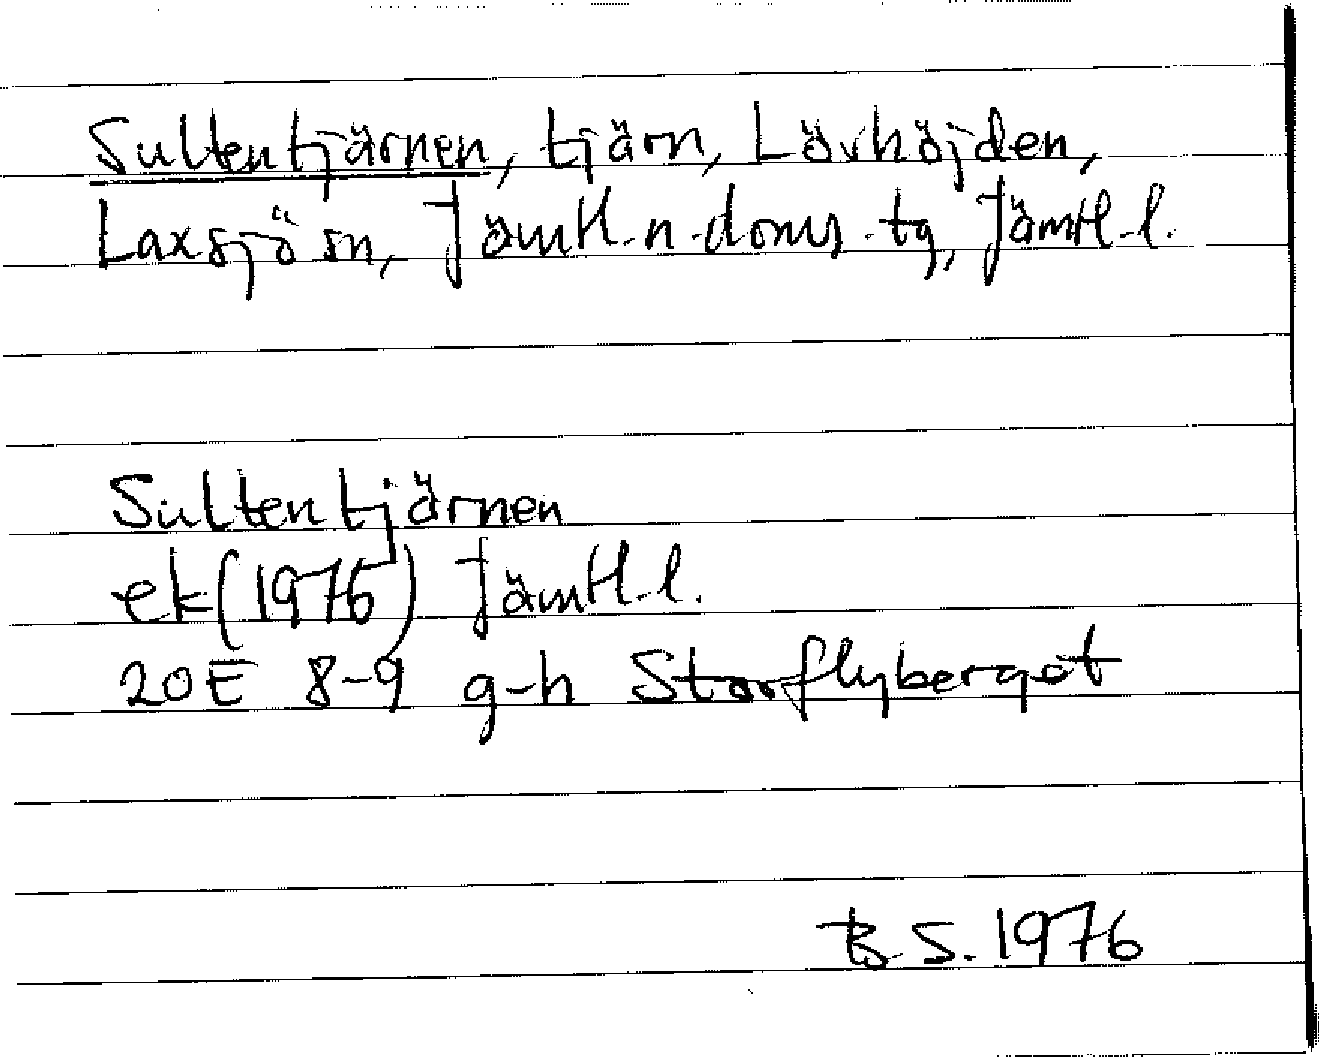 Sultentjärnen, tjärn, Lövhöjden,
Laxsjö sn, Jämtl. n. doms. tg, Jämtl. l.
Sultentjärnen
ek (1976) Jämtl. l.
20E 8-9 g-h Storflyberget
B.S. 1976